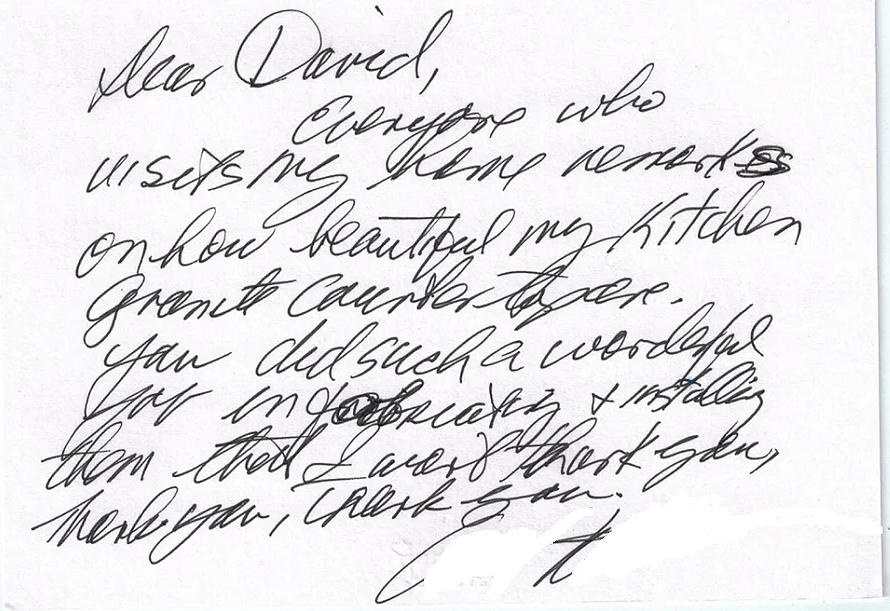 Dear David,
Everyone who
visits my home remarks
on how beautiful my Kitchen
Granite Counter tops are.
You did such a wonderful
job in fabricating & installing
them that I want thank you,
thank you, thank you.